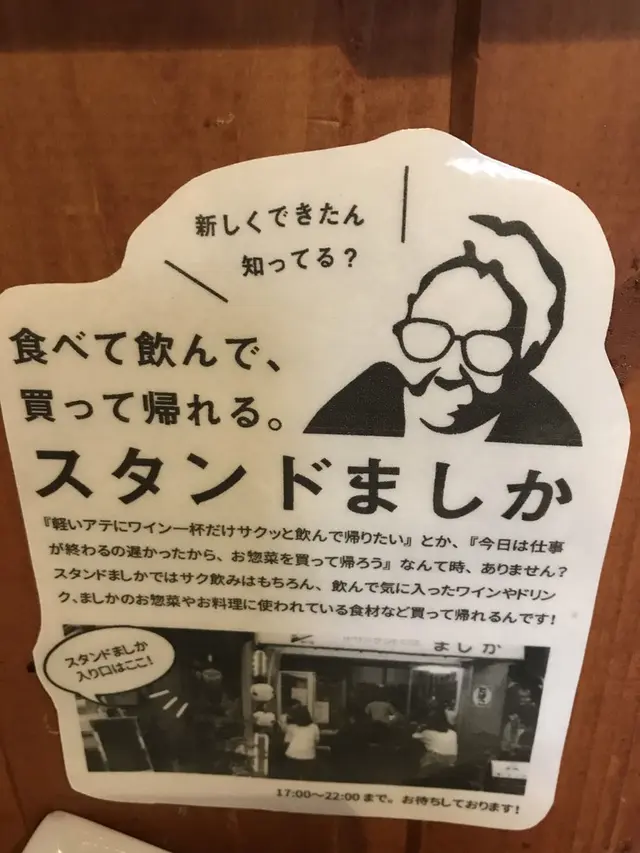 新しくできたん
知ってる？
食べて飲んで、
買って帰れる。
スタンドましか
『軽いアテにワイン一杯だけサクッと飲んで帰りたい』とか、『今日は仕事
が終わるの遅かったから、お惣菜を買って帰ろう』なんて時、ありません？
スタンドましかではサク飲みはもちろん、飲んで気に入ったワインやドリン
ク、ましかのお惣菜やお料理に使われている食材など買って帰れるんです！
ましか
スタンドましか
入り口はここ！
17:00〜22:00まで。お待ちしております！